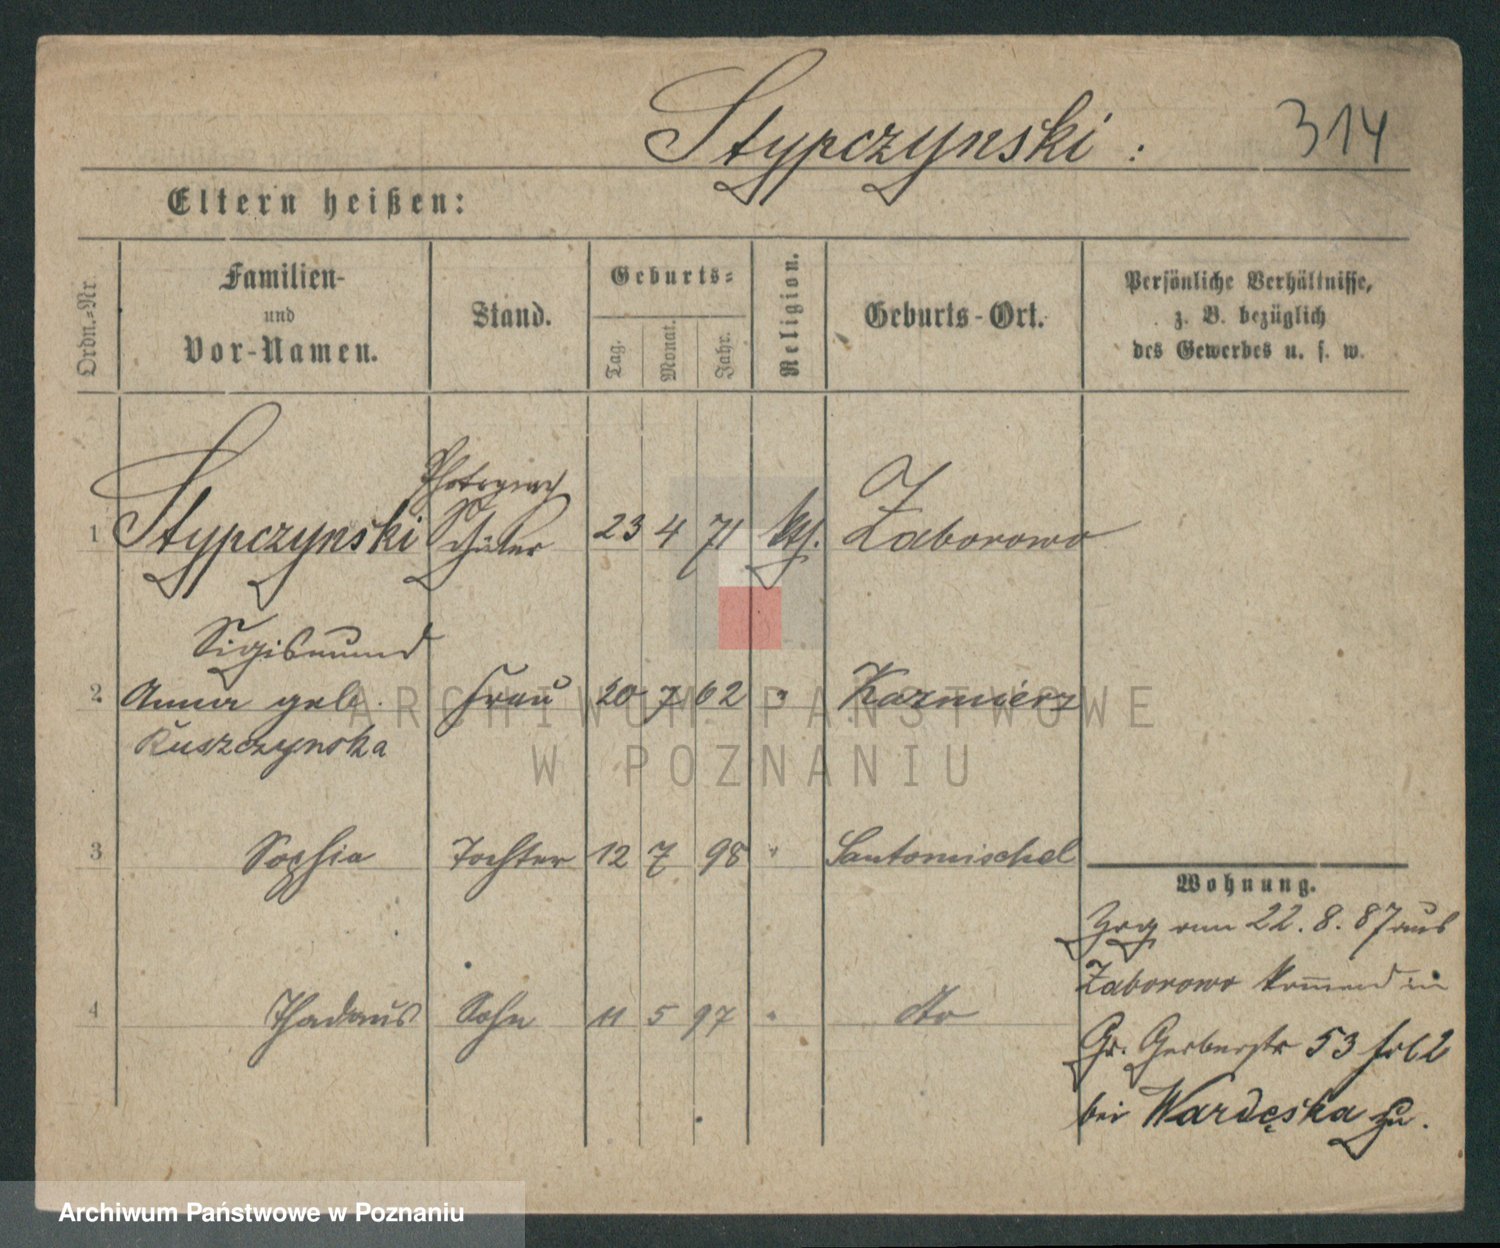 Stypczynski :
314
Eltern heißen:
Ordn.-Nr.
Familien-
und
Vor-Namen.
Stand.
Geburts-
Tag.
Monat.
Jahr.
Religion.
Geburts-Ort.
Persönliche Verhältnisse,
z. B. bezüglich
des Gewerbes u. s. w.
Photograph
1 Stypczynski Schüler 23 4 71 kth. Zaborowo
Sigismund
2 Anna geb. Frau 20 7 62 " Kazmierz
Ruszczynska
3 Sophia Tochter 12 7 98 " Santomischel
4 Thadäus Sohn 11 5 97 " dto
Wohnung.
Zzg am 22. 8. 87 aus
Zaborowo kommend in
Gr. Gerberstr 53
bei Wardęska zu.
ARCHIWUM PAŃSTWOWE
W POZNANIU
Archiwum Państwowe w Poznaniu